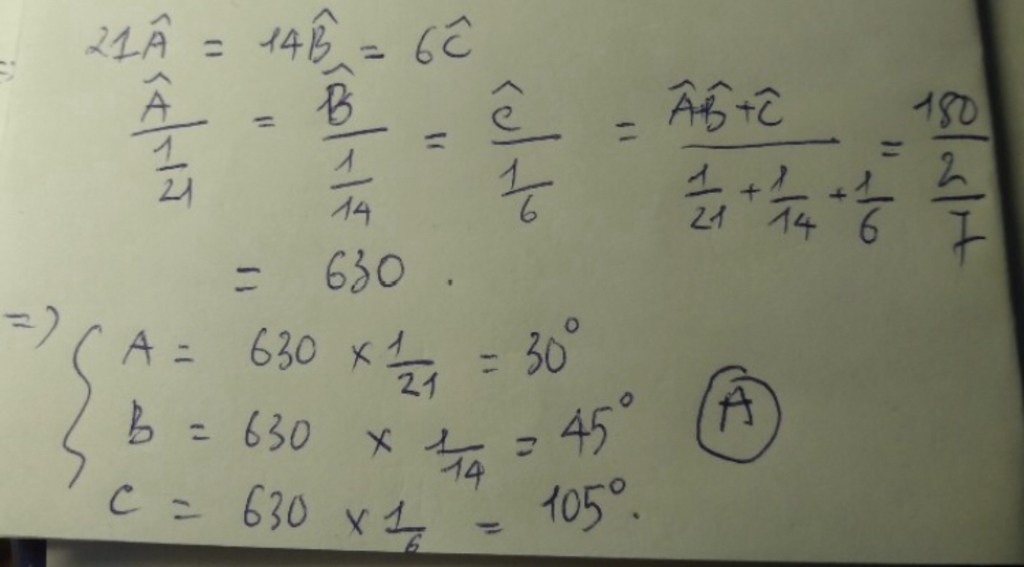 21Â = 14B̂ = 6Ĉ
Â/(1/21) = B̂/(1/14) = Ĉ/(1/6) = (Â+B̂+Ĉ)/(1/21 + 1/14 + 1/6) = 180/(2/7)
= 630 .
=> { A = 630 × 1/21 = 30°
B = 630 × 1/14 = 45° A
C = 630 × 1/6 = 105°.